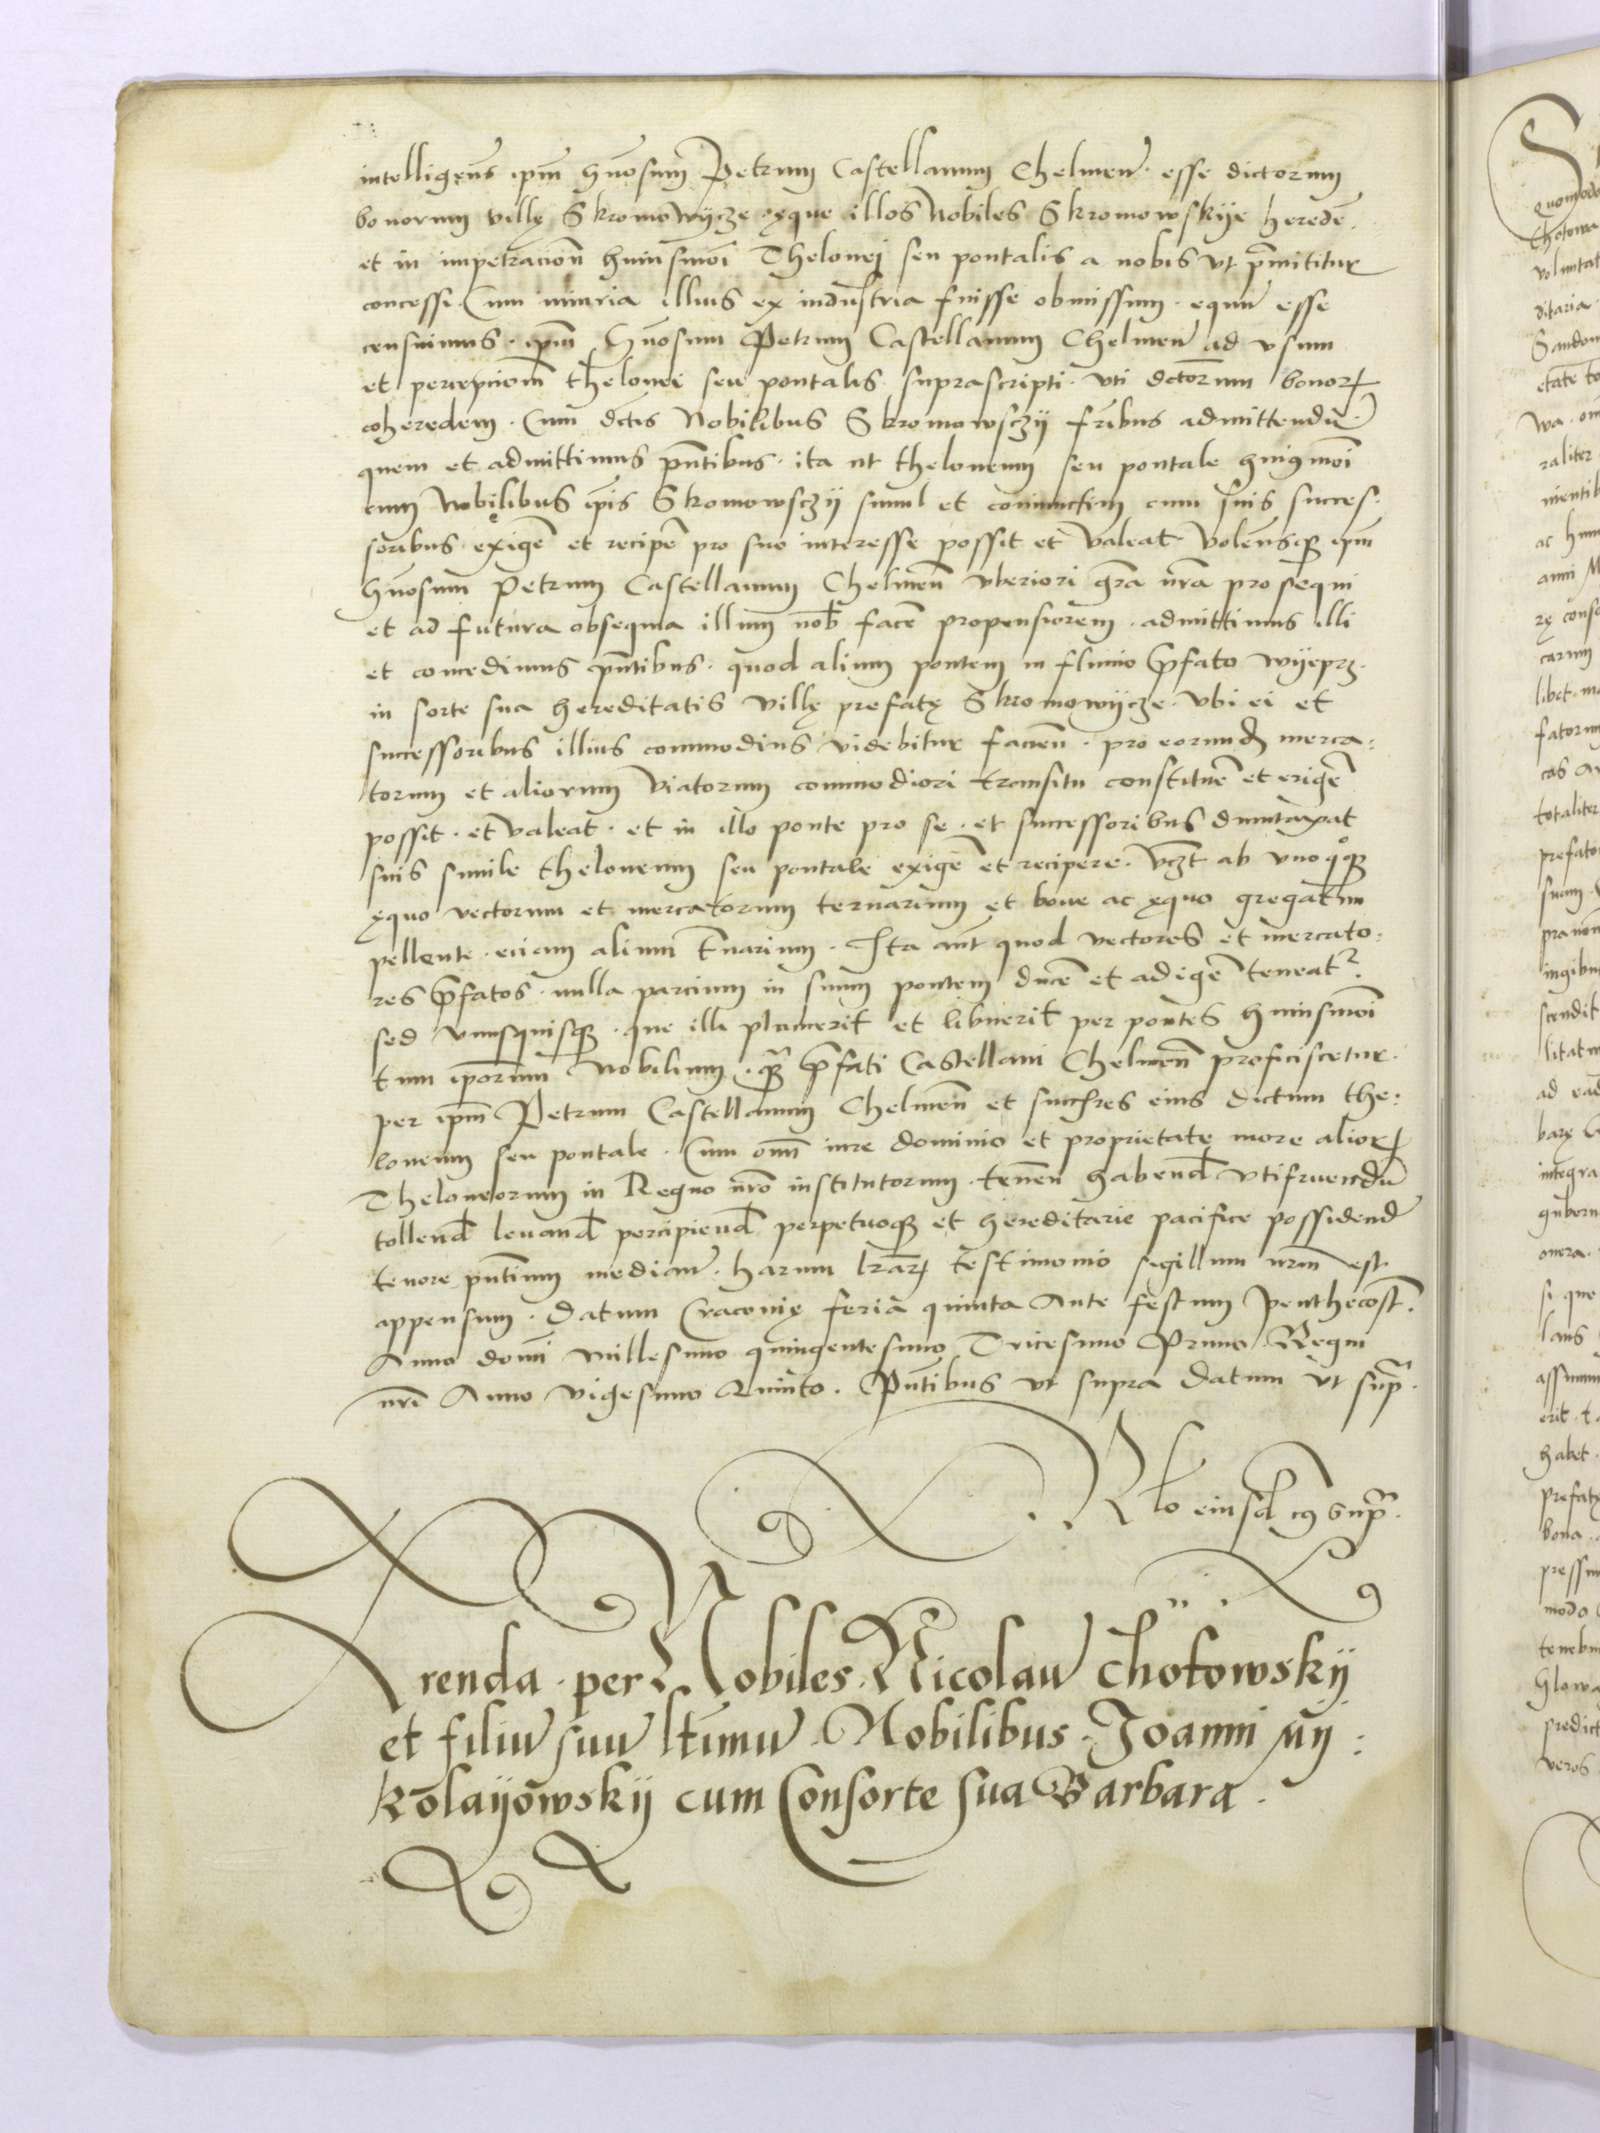 intelligens ipm Gnosum Petrum Castellanum Chelmen. esse dictorum
bonorum villę Skromowycze ęque illos Nobiles Skromowskye herede.
et in impetracion huiusmoi Thelonei seu pontalis a nobis vt pmittitur
concessi. Cum iniuria illius ex industria fuisse obmissum. equu esse
censuimus. ipm Gnosum Petrum Castellanum Chelmen ad vsum
et percepciom thelonei seu pontalis suprascripti. vti dctorum bonoꝝ
coheredem. Cum dctis Nobilibus Skromowsczy fribus admittendu
quem et admittimus pntibus. ita ut theloneum seu pontale huiusmoi
cum Nobilibus ipis Skromowsczy simul et coniunctim cum suis succes.
soribus exige et recipe pro suo interesse possit et valeat. Volensqꝫ ipm
Gnosum Petrum Castellanum Chelmen vberiori gra nra prosequi
et ad futura obsequia illum nob face propensiorem. admittimus illi
et concedimus pntibus. quod alium pontem in fluuio pfato Wyeprz.
in sorte sua hereditatis villę prefatę Skromowycze. Vbi ei et
successoribus illius commodius videbitur facien. pro eorund merca:
torum et aliorum viatorum commodiori transitu constitue et erige
possit. et valeat. et in illo ponte pro se. et successoribus duntaxat
suis simile theloneum seu pontale exige et recipere. vczt ab vnoqoqꝫ
ęquo vectorum et mercatorum ternarium et boue ac ęquo gregatim
pellente. eciam alium tnarium. Ita ant quod vectores et mercato:
res pfatos. nulla parcium in suum pontem duce et adige teneatr.
sed vnusquisqꝫ. que illi placuerit et libuerit per pontes huiusmoi
tum iporum Nobilium. qꝫ pfati Castellani Chelmen proficiscetur.
per ipm Petrum Castellanum Chelmen et succsres eius dictum the:
loneum seu pontale. Cum omn iure dominio et proprietate more alioꝝ
Theloneorum in Regno nro institutorum. tenen habend vtifruendu
tollend leuand percipiend perpetuoqꝫ et hereditarie pacifice possidend
tenore pntium median. harum lraꝝ testimonio sigillum nrm est
appensum. Datum Cracouię feria quinta Ante festum Penthecost.
Anno domi Millesimo quingentesimo Tricesimo Primo. Regni
nri Anno vigesimo Quinto. Pntibus vt supra datum vt supr.
Rlo eiusd cuius supr.
Arenda. per Nobiles. Nicolau Chotowsky
et filiu suu ltimu. Nobilibus. Joanni My:
kolayowsky cum Consorte sua Barbara.